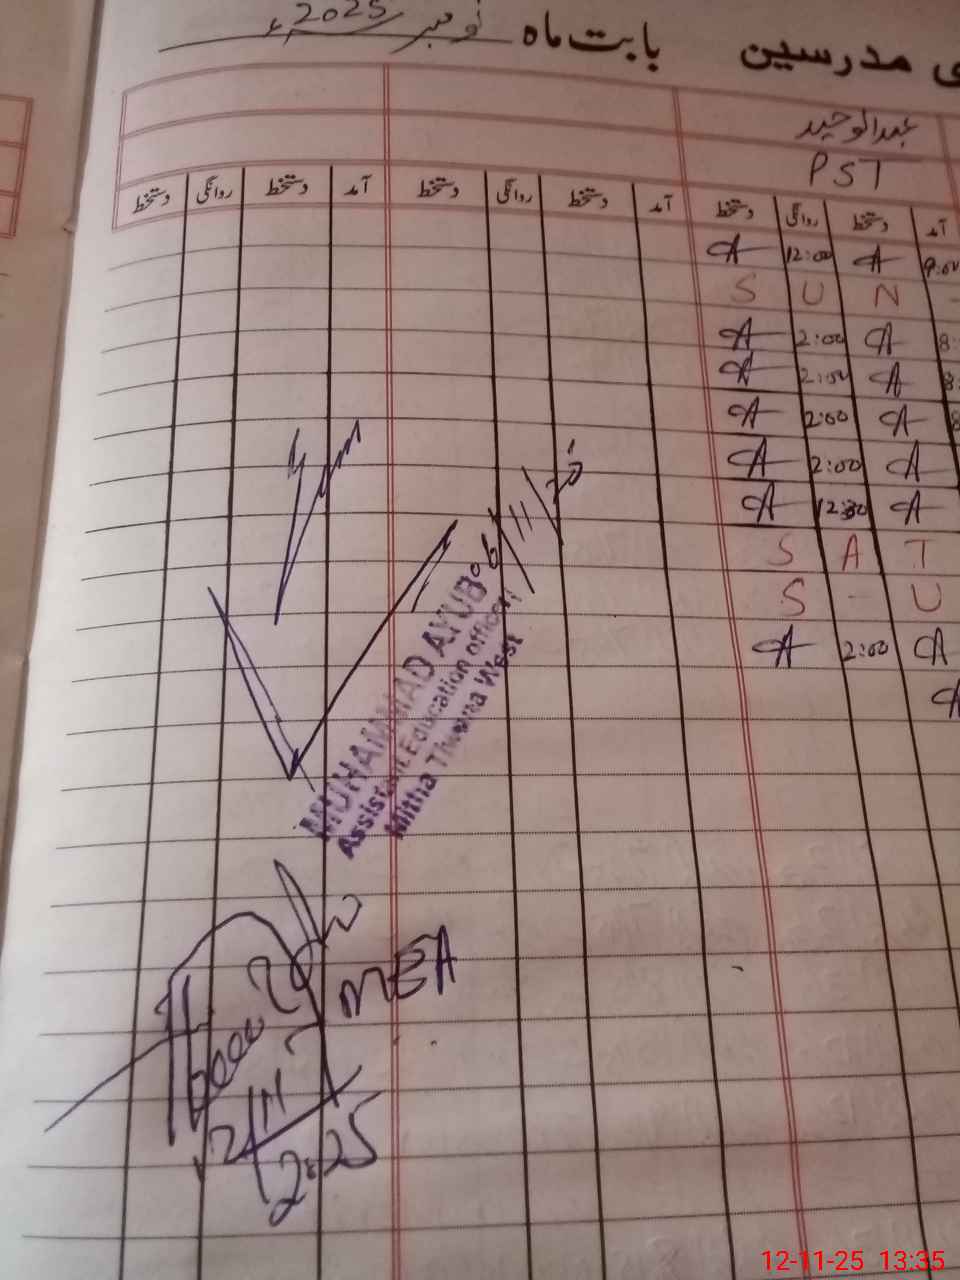 ی مدرسین بابت ماہ نومبر 2025ء
عبدالوحید
PST
آمد دستخط روانگی دستخط آمد دستخط روانگی دستخط آمد دستخط روانگی دستخط
9:00 A 12:00 A
S U N -
8: A 2:00 A
8: A 2:00 A
8 A 2:00 A
A 2:00 A
A 12:30 A
S A T
S - U
A 2:00 A
MUHAMMAD AYUB
Assistant Education officer
Mitha Thawna West
MEA
12/11/2025
12-11-25 13:35